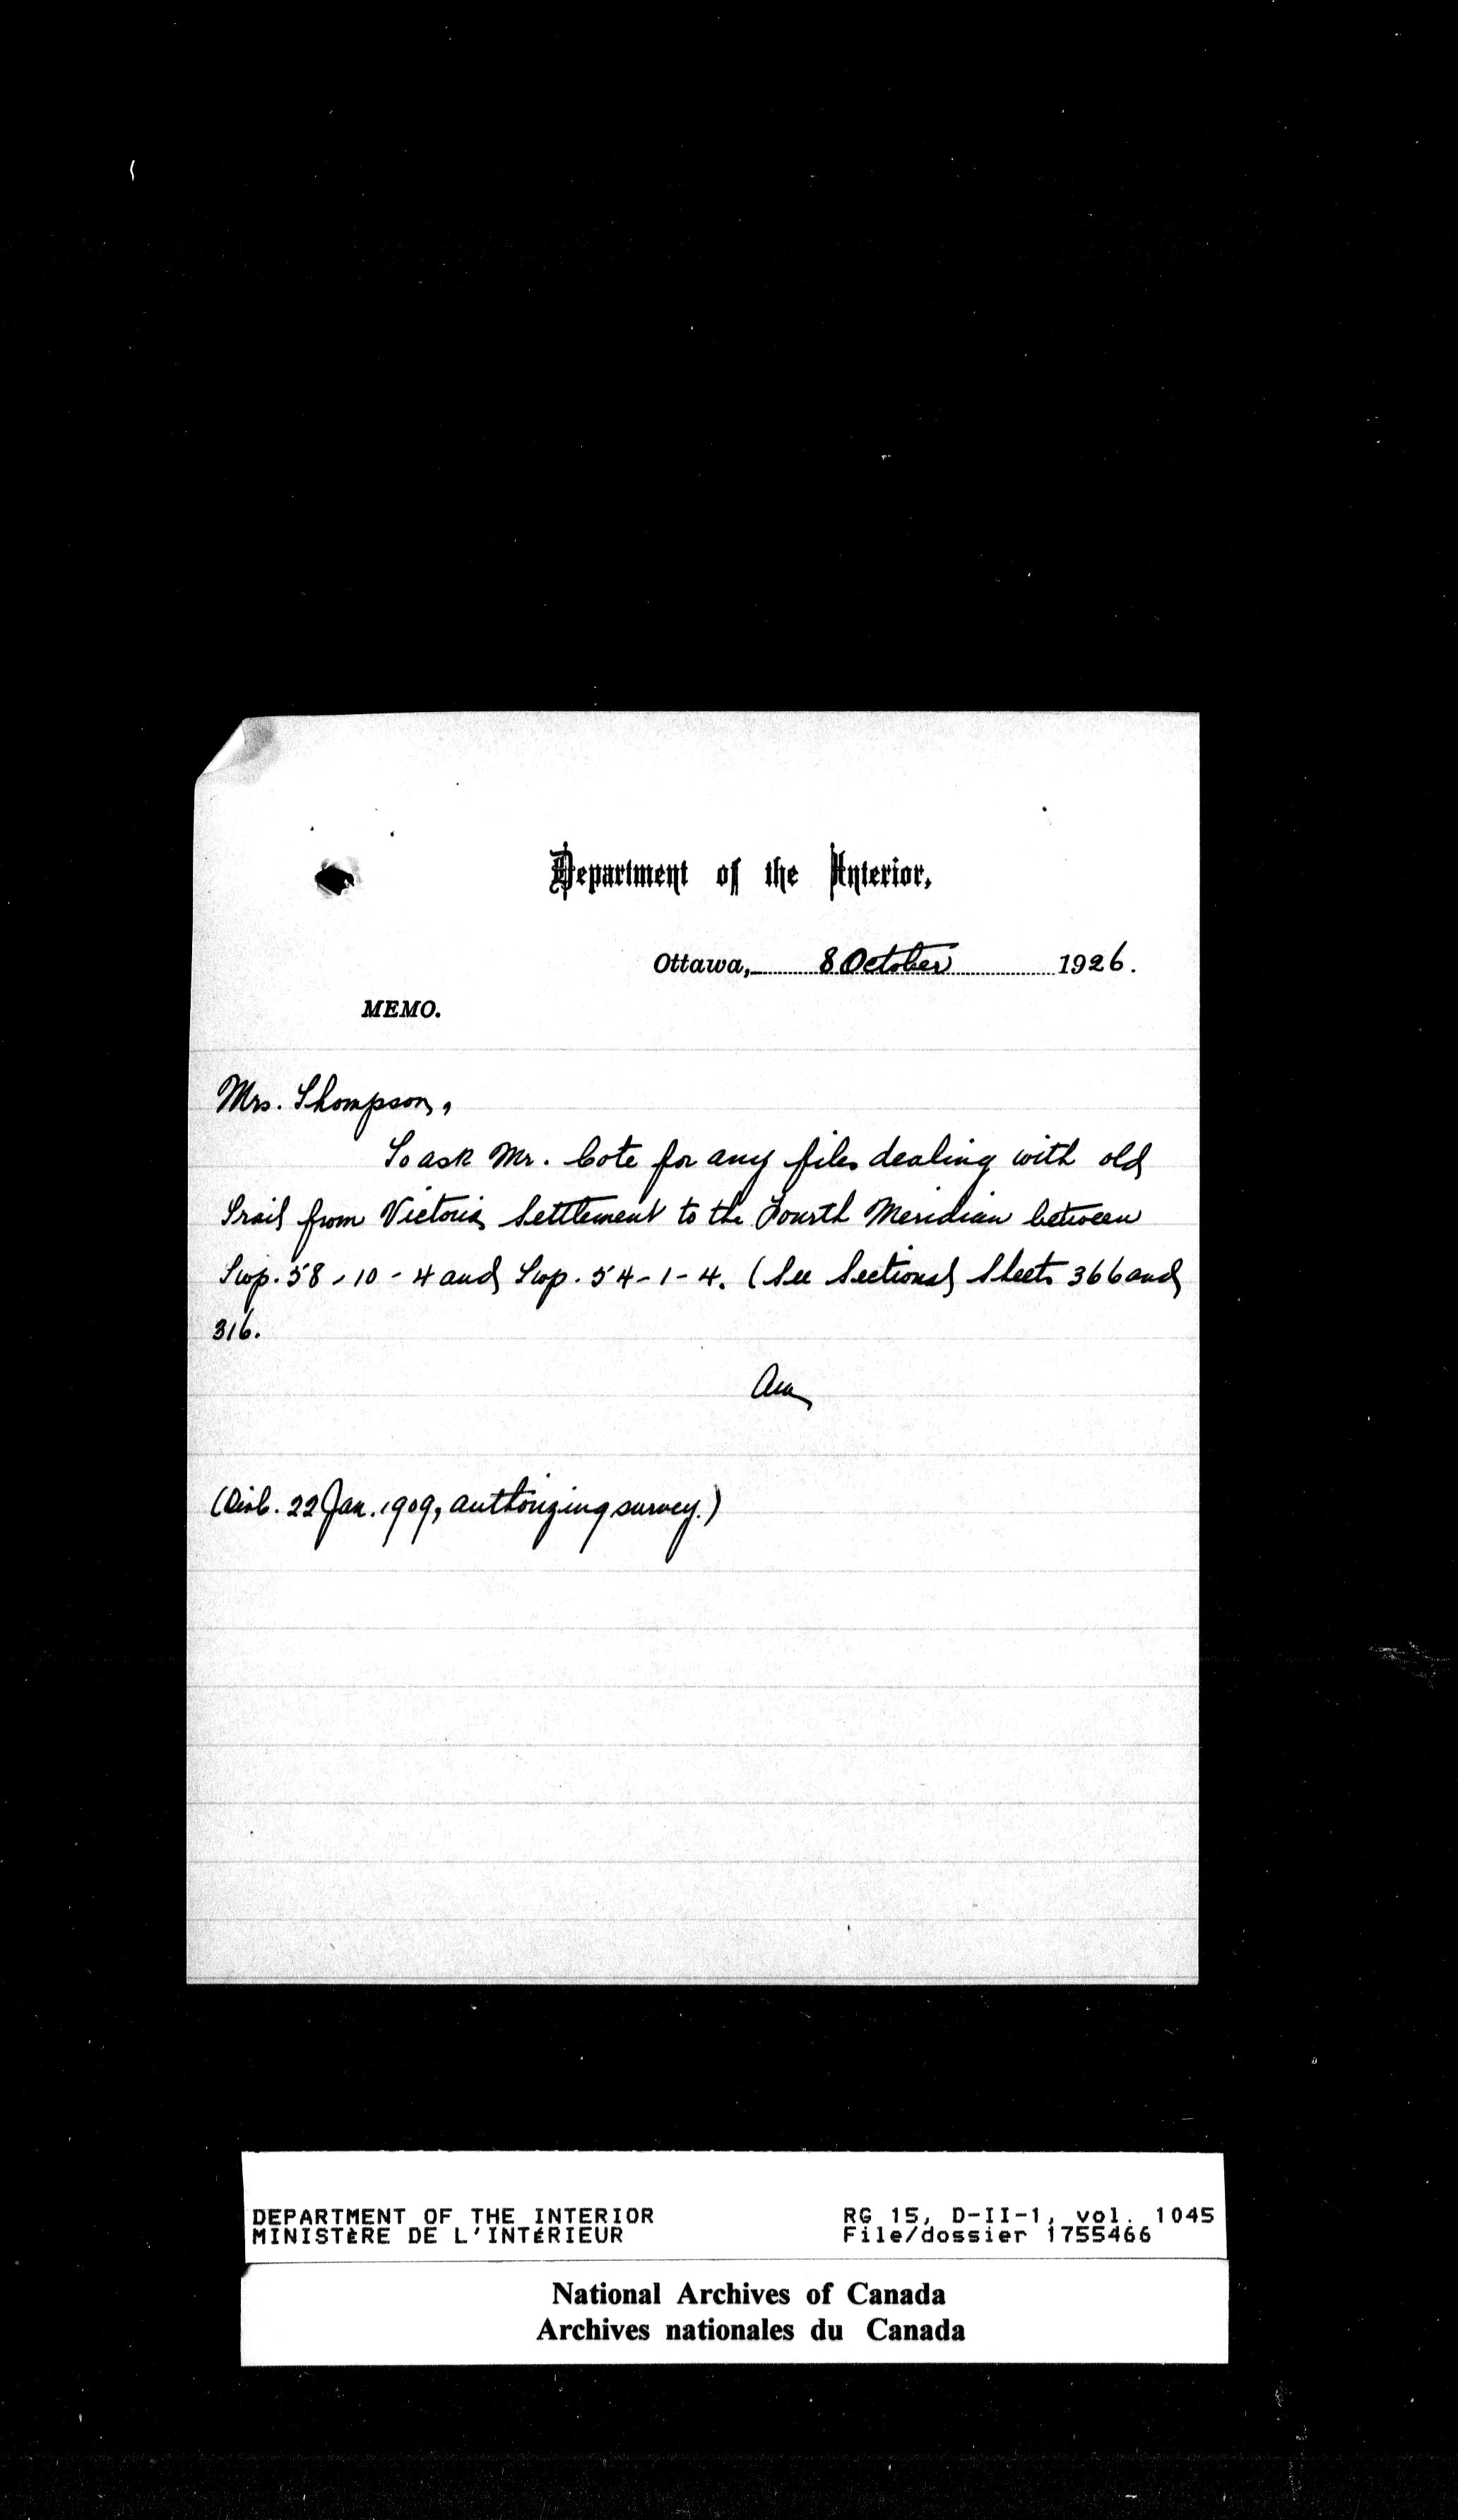 Department of the Interior,
Ottawa, 8 October 1926.
MEMO.
Mrs. Thompson,
To ask Mr. Cote for any files dealing with old
Trail from Victoria Settlement to the Fourth Meridian between
Twp. 58-10-4 and Twp. 54-1-4. (See Sectional Sheets 366 and
316.
(OinC. 22 Jan. 1909, authorizing survey.)
DEPARTMENT OF THE INTERIOR RG 15, D-II-1, vol. 1045
MINISTÈRE DE L'INTÉRIEUR File/dossier 1755466
National Archives of Canada
Archives nationales du Canada